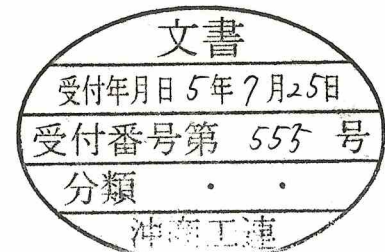 文書
受付年月日 5年7月25日
受付番号第 555 号
分類 ・ ・
沖商工連